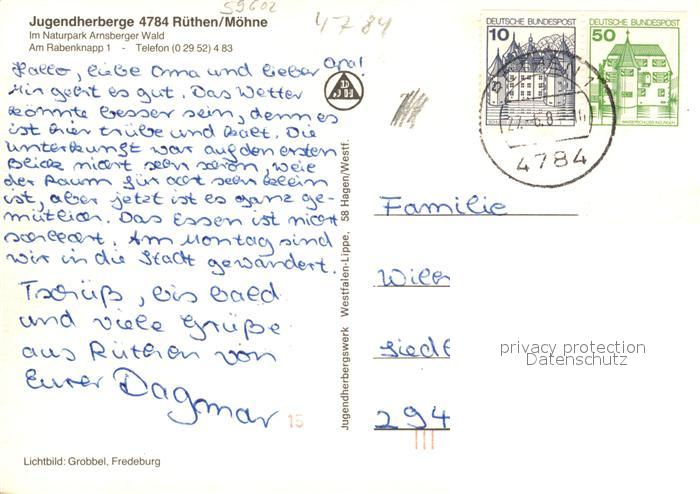 59602
4784
Jugendherberge 4784 Rüthen/Möhne
Im Naturpark Arnsberger Wald
Am Rabenknapp 1 - Telefon (0 29 52) 4 83
Hallo, liebe Oma und lieber Opa!
Mir geht es gut. Das Wetter
könnte besser sein, denn es
ist hier trübe und kalt. Die
Unterkunft war auf den ersten
Blick nicht sehr schön, weil
der Raum für acht sehr klein
ist, aber jetzt ist es ganz ge-
mütlich. Das Essen ist nicht
schlecht. Am Montag sind
wir in die Stadt gewandert.
Tschüß, bis bald
und viele Grüße
aus Rüthen von
Eurer Dagmar
15
Lichtbild: Grobbel, Fredeburg
Jugendherbergswerk Westfalen-Lippe, 58 Hagen/Westf.
DJH
DEUTSCHE BUNDESPOST
10
DEUTSCHE BUNDESPOST
50
4784
Familie
Wil
Siedl
294
privacy protection
Datenschutz